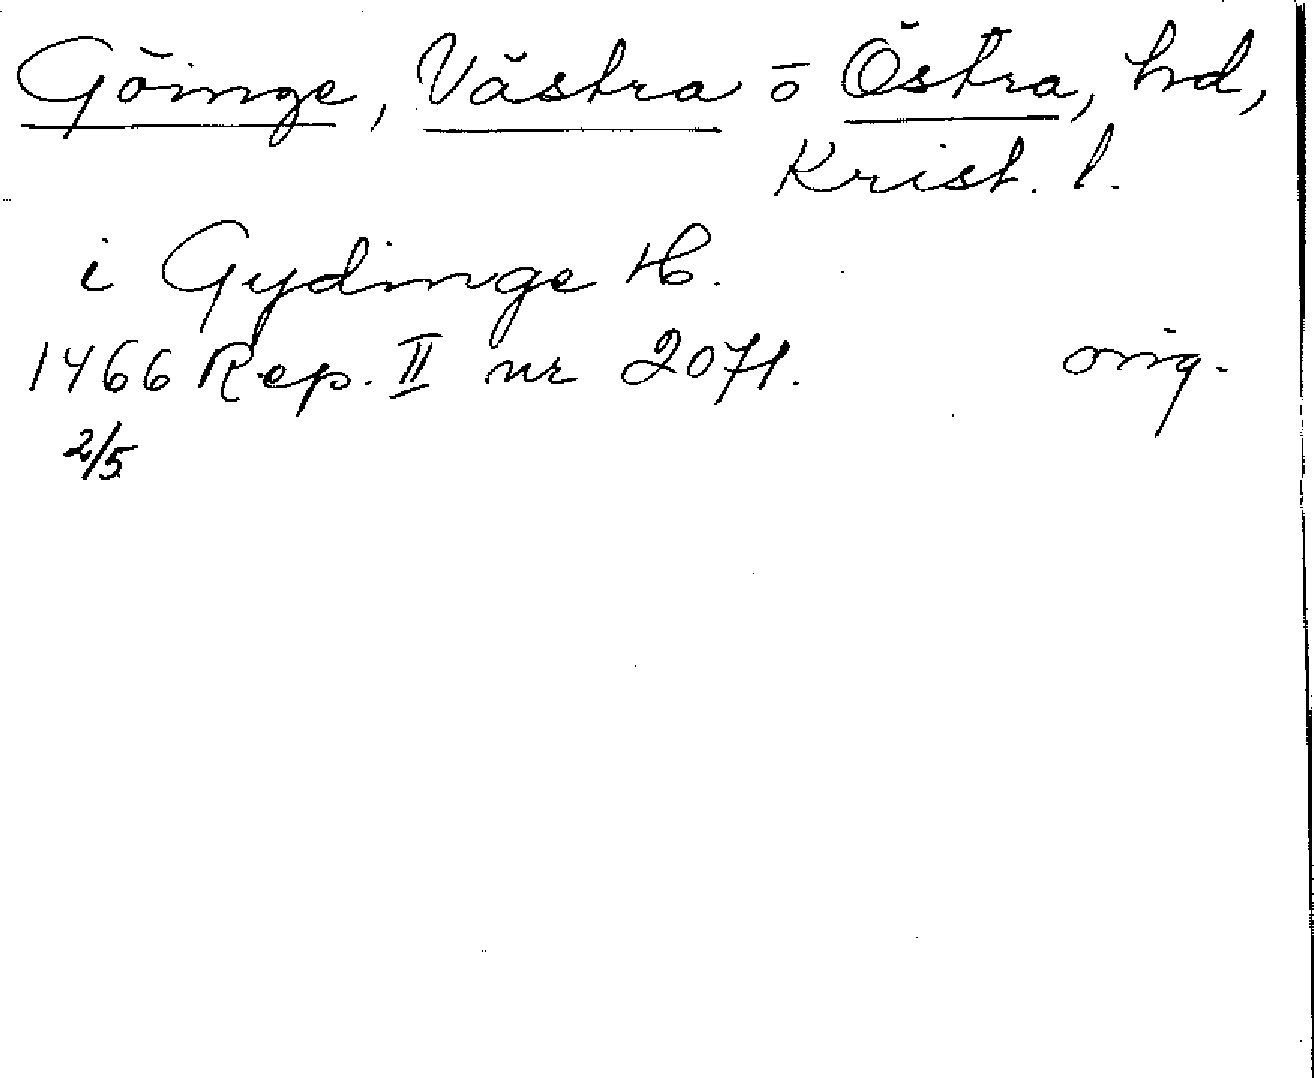 Göinge, Västra o Östra, hd,
Krist. l.
i Gydinge H.
1466 Rep. II nr 2071. orig.
2/5